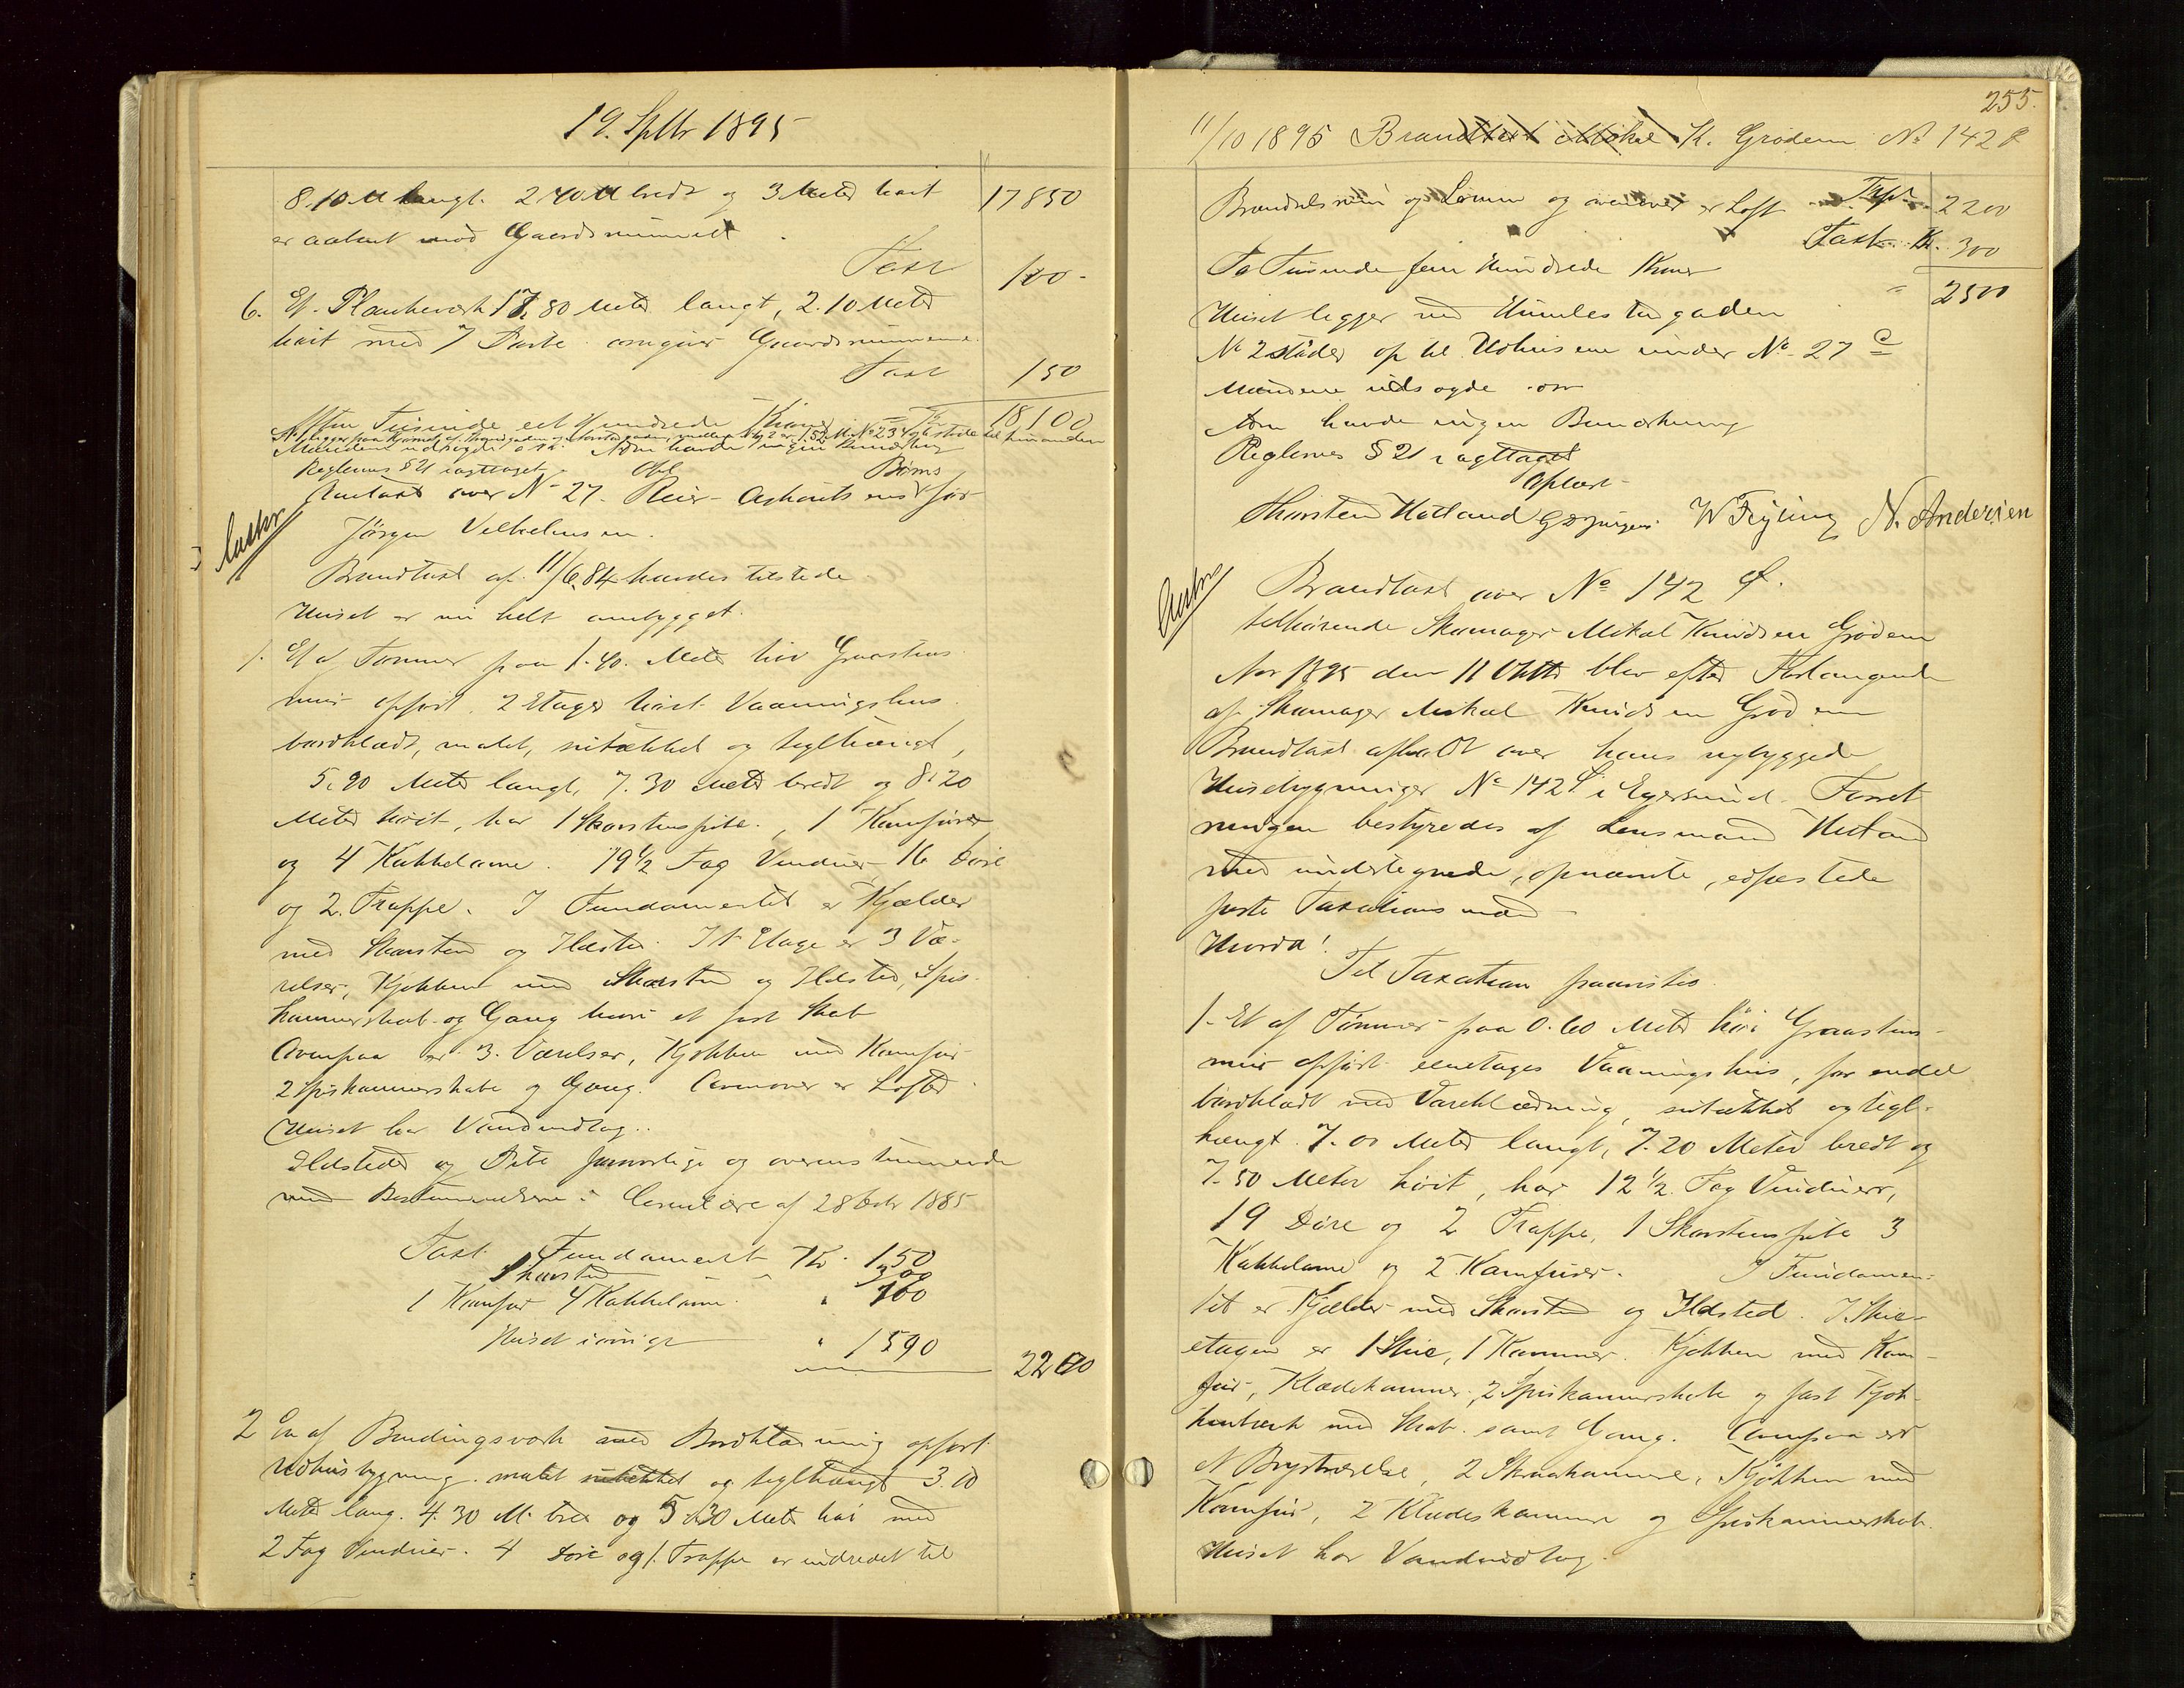 19. Septbr 1895
8,10 M langt. 2.40 M bredt og 3 Meter høit 17850
er aabent mod Gaardsrummet.
Taxt 100-
6. Et Plankeværk 17,80 Meter langt, 2.10 Meter
høit med 7 Porte omgiver Gaardsrummene.
Taxt 150
Atten Tusinde eet Hundrede Kroner 18100
Mændene udsagde
Reglernes § 21 iagttaget.
Omtaxt over No 27. for
Jørgen Vilhelmsen.
Brandtaxt af 11/6 84 havdes tilstede
Huset er nu helt ombygget.
1. Et af Tømmer paa 1.40. Meter høi Graastens
mur opført 2 Etages høit Vaaningshus
bordklædt, malet, nitækket og teglhængt,
5,90 Meter langt, 7.30 Meter bredt og 8.20
Meter høit, har 1 Skorstenspibe, 1 Komfur
og 4 Kakkelovne. 19 1/2 Fag Vinduer 16 Døre
og 2 Trapper. I Fundamentet er Kjælder
med Skorsten og Ildsted. I 1ste Etage er 3 Væ-
relser, Kjøkken med Skorsten og Ildsted, Spis-
kammerskab og Gang hvori et fast Skab
Ovenpaa er 3 Værelser, Kjøkken med Komfur
2 Spiskammerskabe og Gang. Ovenover er Loftet
Huset har Vandindlæg.
Ildsteder og Pibe forsvarlige og overensstemmende
med Bestemmelserne i Circulære af 28 1885
Taxt Fundament Kr. 150
Skorsten " 300
1 Komfur 4 Kakkelovne " 160
Huset iøvrigt " 1590
2200
2 En af Bindingsværk med Bordklædning opført
Udhusbygning malet og teglhængt 3.10
Meter lang. 4.30 M. bred og 5.30 Meter høi med
2 Fag Vinduer. 4 Døre og 1 Trappe er indredet til
255.
11/10 1895 K. Grødem No 142
Brændselsrum og Lemme og ovenover er Loft Tap. 2200
Taxt Kr. 300
To Tusinde fem Hundrede Kroner " 2500
Huset ligger ved Humlestøgaden
No 2 støder op til Udhusene under No 27 c
Mændene udsagde om
Dom havde ingen Bemærkning
Reglernes § 21 iagttaget
Oplæst
Thorsten Hetland W Feyling N. Andersen
Brandtaxt over No 142
tilhørende Skomager Mikal Knudsen Grødem
Aar 1895 den 11 Oktbr blev efter Forlangende
af Skomager Mikal Knudsen Grødem
Brandtaxt afholdt over hans nybyggede
Husebygninger No 142 i Egersund. Forret-
ningen bestyredes af Lensmand Hetland
med undertegnede, opnævnte, edfæstede
faste Taxationsmænd
Hvorda!
Til Taxation fremvistes
1. Et af Tømmer paa 0.60 Meter høi Graastens-
mur opført eenetages Vaaningshus, for endel
bordklædt med Vareklædning, nitækket og tegl-
hængt. 7.00 Meter langt, 7.20 Meter bredt og
7.50 Meter høit, har 12 1/2 Fag Vinduer,
19 Døre og 2 Trapper, 1 Skorstenspibe 3
Kakkelovne og 2 Komfurer. I Fundamen-
tet er Kjælder med Skorsten og Ildsted. I Stue-
etagen er 1 Stue, 1 Kammer. Kjøkken med Kom-
fur, Klædekammer, 2 Spiskammerskabe og fast Kjøk-
kenbænk med Skab samt Gang. Ovenpaa er
et Brystværelse, 2 Skraakammere, Kjøkken med
Komfur, 2 Klædeskammere og Spiskammerskab.
Huset har Vandindlæg.